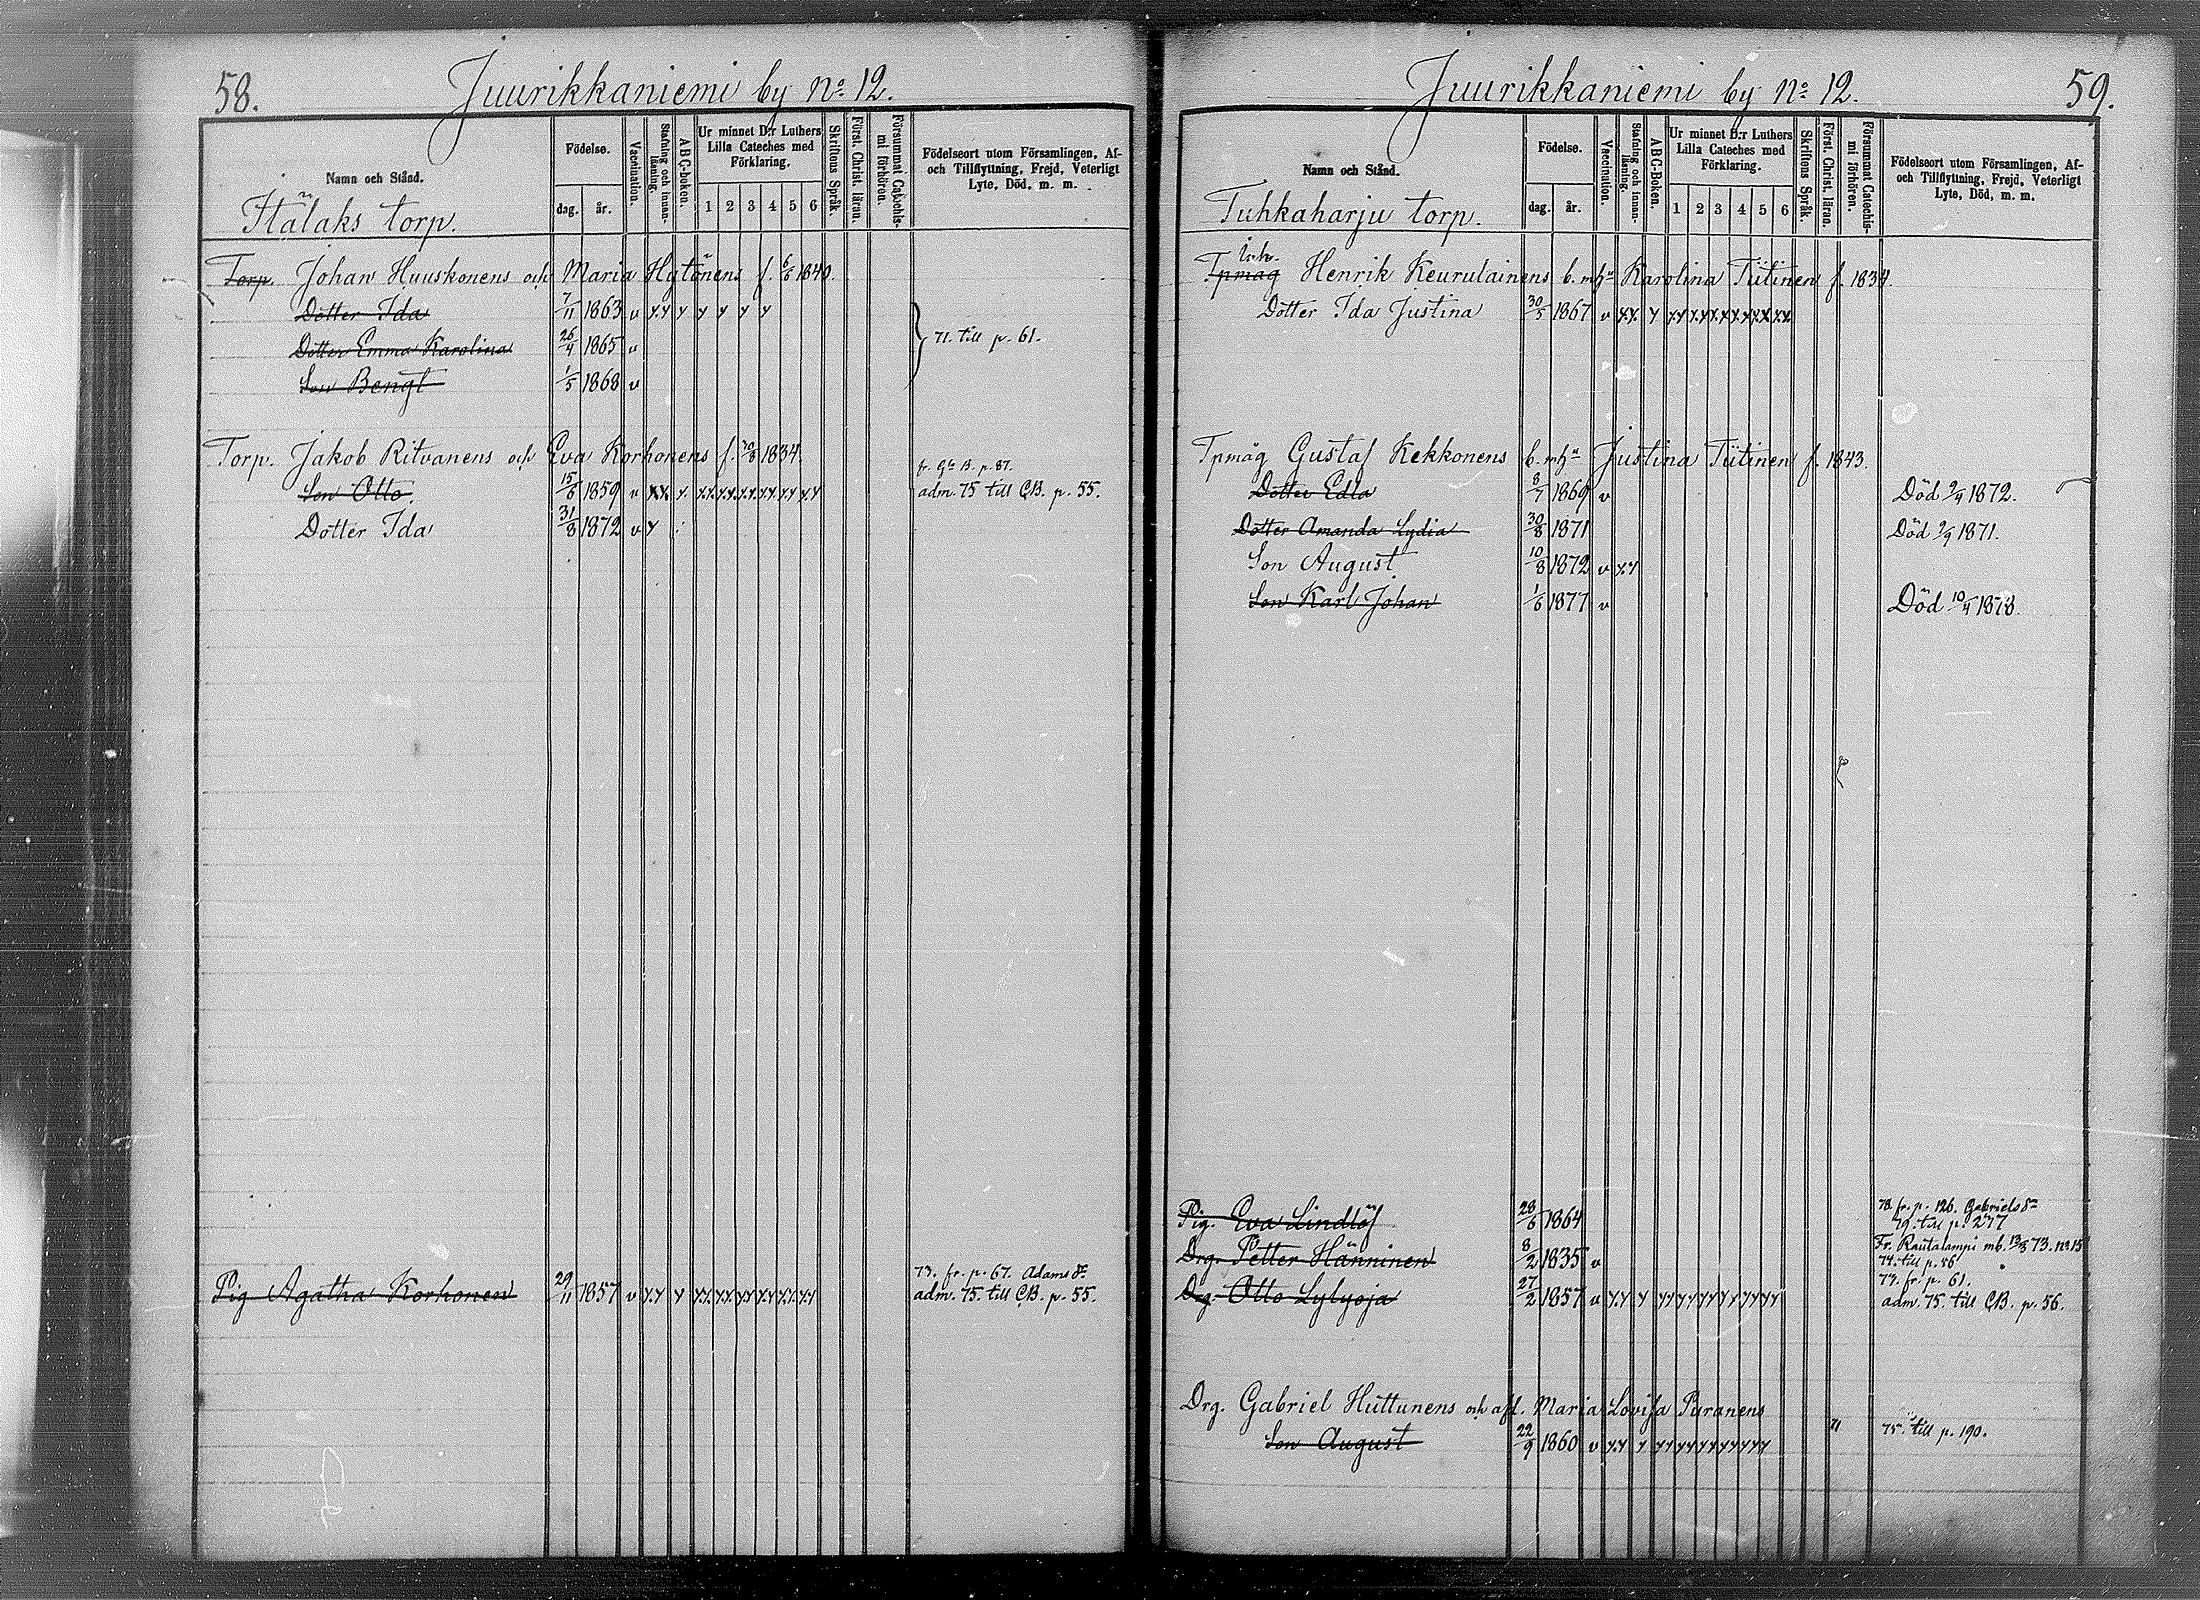 58.
Juurikkaniemi by No 12.
Namn och Stånd.
Födelse.
dag.
år.
Vaccination.
Stafning och innanläsning.
ABC-boken.
Ur minnet D:r Luthers Lilla Cateches med Förklaring.
1 2 3 4 5 6
Skriftens Språk.
Först. Christ. läran.
Försummat Catechismi förhören.
Födelseort utom Församlingen, Af- och Tillflyttning, Frejd, Veterligt Lyte, Död, m. m.
Hälaks torp.
Torp. Johan Huuskonens och Maria Hytönens f. 6/6 1840.
Dotter Ida 7/11 1863 v
Dotter Emma Karolina 26/4 1865 v
71. till p. 61.
Son Bengt 1/5 1868 v
Torp. Jakob Ritvanens och Eva Korhonens f. 1834.
fr. Gla B. p. 87.
Son Otto. 15/6 1859 v
adm. 75 till CB. p. 55.
Dotter Ida 31/8 1872 v
73. fr. p. 67. Adams dr
Pig Agatha Korhonen 29/11 1857 v
adm. 75. till CB. p. 55.
59.
Juurikkaniemi by No 12.
Namn och Stånd.
Födelse.
dag.
år.
Vaccination.
Stafning och innanläsning.
ABC-boken.
Ur minnet D:r Luthers Lilla Cateches med Förklaring.
1 2 3 4 5 6
Skriftens Språk.
Först. Christ. läran.
Försummat Catechismi förhören.
Födelseort utom Församlingen, Af- och Tillflyttning, Frejd, Veterligt Lyte, Död, m. m.
Tuhkaharju torp.
Inh.
Tpmåg Henrik Keurulainens b. m hu Karolina Tiitinen f. 1834.
Dotter Ida Justina 30/5 1867 v
Tpmåg Gustaf Kekkonens b. m hu Justina Tiitinen f. 1843.
Dotter Edla 8/7 1869 v Död 2/4 1872.
Dotter Amanda Lydia 30/8 1871 Död 9/9 1871.
Son August 10/8 1872 v
Son Karl Johan 1/6 1877 v Död 10/4 1878.
78. fr. p. 126. Gabriels dr
Pig. Eva Lindlöf 28/6 1864
79. till p. 277
Fr. Rautalampi mb. 13/3 73. no 15
Drg. Petter Hänninen 8/2 1835 v
74. till p. 56
77. fr. p. 61.
Drg. Otto Lylyoja 27/2 1857 v
adm. 75. till CB. p. 56.
Drg. Gabriel Huttunens och afl. Maria Lovisa Puranens
Son August 22/9 1860 v
75. till p. 190.